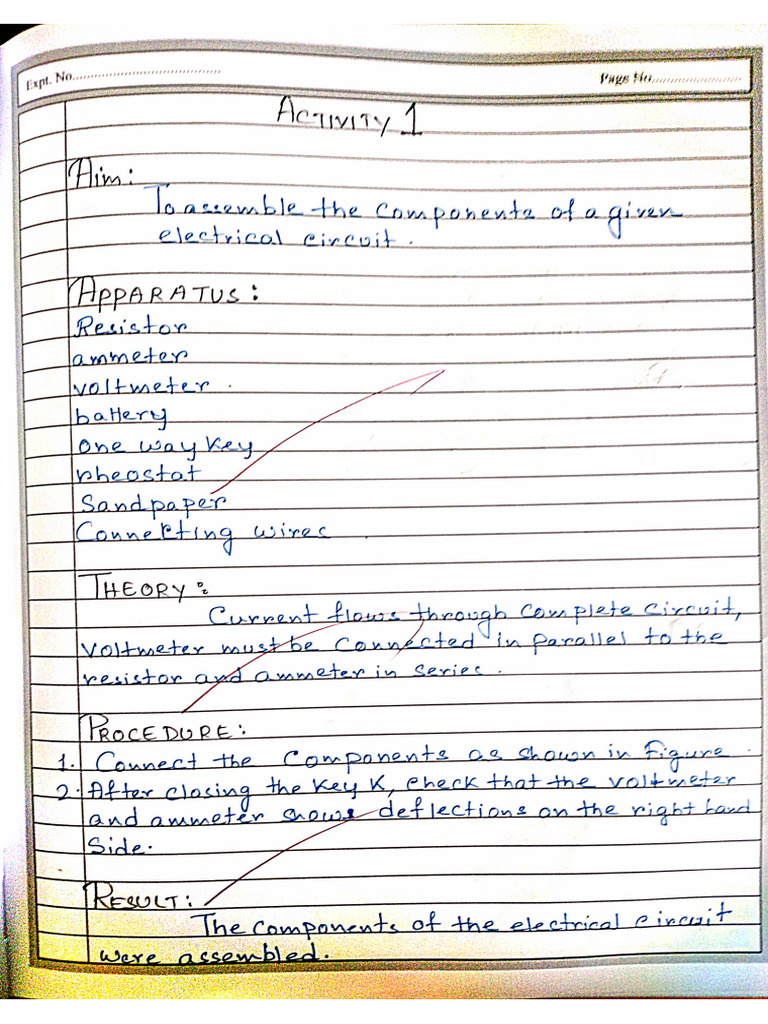 Expt. No.
Page No.
ACTIVITY 1
Aim:
To assemble the components of a given
electrical circuit.
APPARATUS:
Resistor
ammeter
voltmeter.
battery
One way key
rheostat
Sandpaper
Connecting wires
THEORY:
Current flows through complete circuit,
voltmeter must be connected in parallel to the
resistor and ammeter in series.
PROCEDURE:
1. Connect the components as shown in figure.
2. After closing the key K, check that the voltmeter
and ammeter shows deflections on the right hand
side.
RESULT:
The components of the electrical circuit
were assembled.